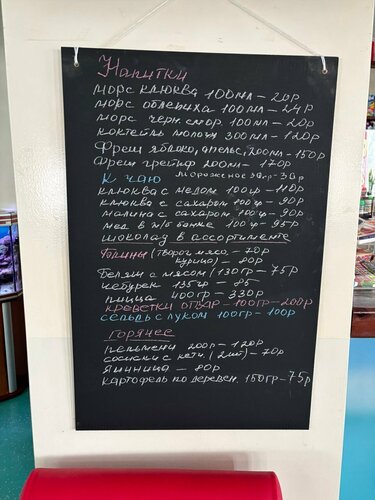 Напитки
морс клюква 100мл – 20р
морс облепиха 100мл – 24р
морс черн. смор 100мл – 20р
коктейль молочн 300мл – 120р
Фреш яблоко, апельс, 200мл – 150р
Фреш грейпф 200мл – 170р
К чаю мороженое 50гр – 30р
клюква с медом 100гр – 110р
клюква с сахаром 100гр – 90р
малина с сахаром 100гр – 90р
мед в ж/б банке 100гр – 95р
шоколад в ассортименте
Блины (творог, мясо – 70р
курица) – 80р
беляш с мясом /130гр – 75р
чебурек 135гр – 85
пицца 400гр – 330р
креветки отвар – 100гр – 200р
сельдь с луком 100гр – 100р
Горячее
пельмени 200г – 120р
сосиски с кетч. (2шт) – 70р
Яичница – 80р
картофель по деревен. 150гр – 75р